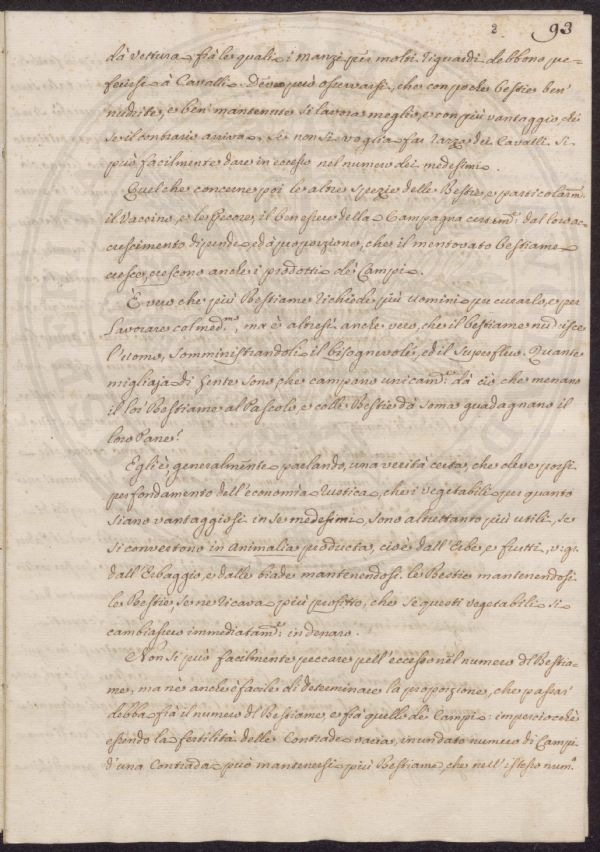 2 93
dà Vettura, frà le quali i manzi per molti riguardi debbono pre-
ferirsi à Cavalli. Deve però osservarsi, che con poche bestie ben
nudrite, e ben mantenute si lavora meglio, e con più vantaggio, che
se il contrario arriva, se non si voglia far razza dei Cavalli. Si
può facilmente dare in eccesso nel numero dei medesimi.
Quel che concerne poi le altre spezie delle Bestie, e particolarm.
il Vaccino, e le Pecore, il benessere della Campagna dal loro ac-
crescimento dipende, ed à proporzione, che il mentovato bestiame
cresce, crescono anche i prodotti de Campi.
È vero che più Bestiame richiede più uomini per curarlo, e per
lavorare col med.mo, ma è altresì anche vero, che il bestiame nudrisce
l'uomo, somministrandoli il bisognevole, ed il superfluo. Quante
migliaja di gente sono, che campano unicam.te dà ciò, che menano
il loro Bestiame al Pascolo, e colle Bestie dà soma guadagnano il
loro Pane!
Egli è, generalm̃te parlando, una verità certa, che deve porsi
per fondamento dell'economia rustica, che i vegetabili per quanto
siano vantaggiosi in se medesimi, sono altrettanto più utili, se
si convertono in Animalia producta, cioè dall'Erbe, e frutti, v. g.
dall'Erbaggio, e dalle biade mantenendosi le Bestie mantenendosi
le Bestie, se ne ricava più profitto, che se questi vegetabili si
cambiassero immediatam.te in denaro.
Non si può facilmente peccare nell'eccesso nel numero dl Bestia-
me, ma nè anche è facile di determinare la proporzione, che passar
debba frà il numero dl Bestiame, e frà quello de Campi: imperciocchè
essendo la fertilità delle Contrade varia, in un dato numero di Campi
d'una Contrada può mantenersi più Bestiame, che nell'istesso num.o